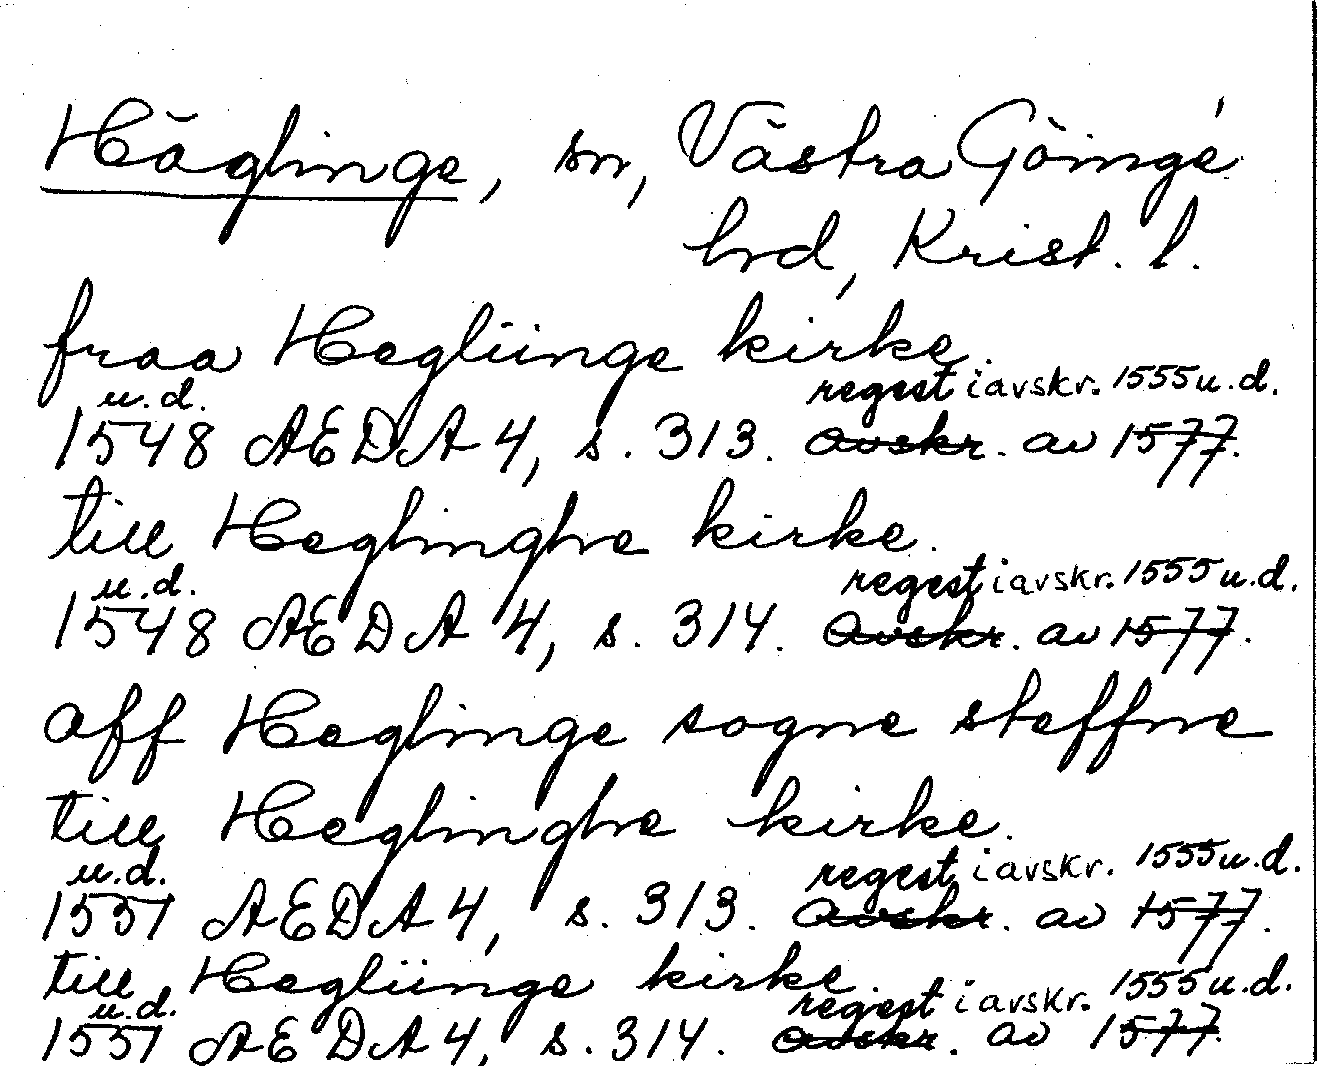 Häglinge, sn, Västra Göinge
hrd, Krist. l.
fraa Heglünge kirke.
u.d. regest i avskr. 1555 u.d.
1548 AEDA 4, s. 313. avskr. av 1577.
till Heglinghe kirke.
u.d. regest i avskr. 1555 u.d.
1548 AEDA 4, s. 314. avskr. av 1577.
aff Heglinge sogne steffne
till Heglinghe kirke.
u.d. regest i avskr. 1555 u.d.
1551 AEDA 4, s. 313. avskr. av 1577.
till Heglünge kirke.
u.d. regest i avskr. 1555 u.d.
1551 AEDA 4, s. 314. avskr. av 1577.